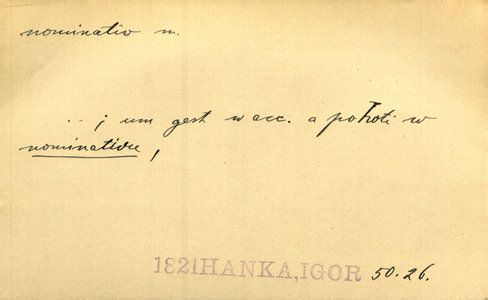 nominativ m.
..; um gest w acc. a pohoti w
nominativu,
1821HANKA,IGOR 50.26.